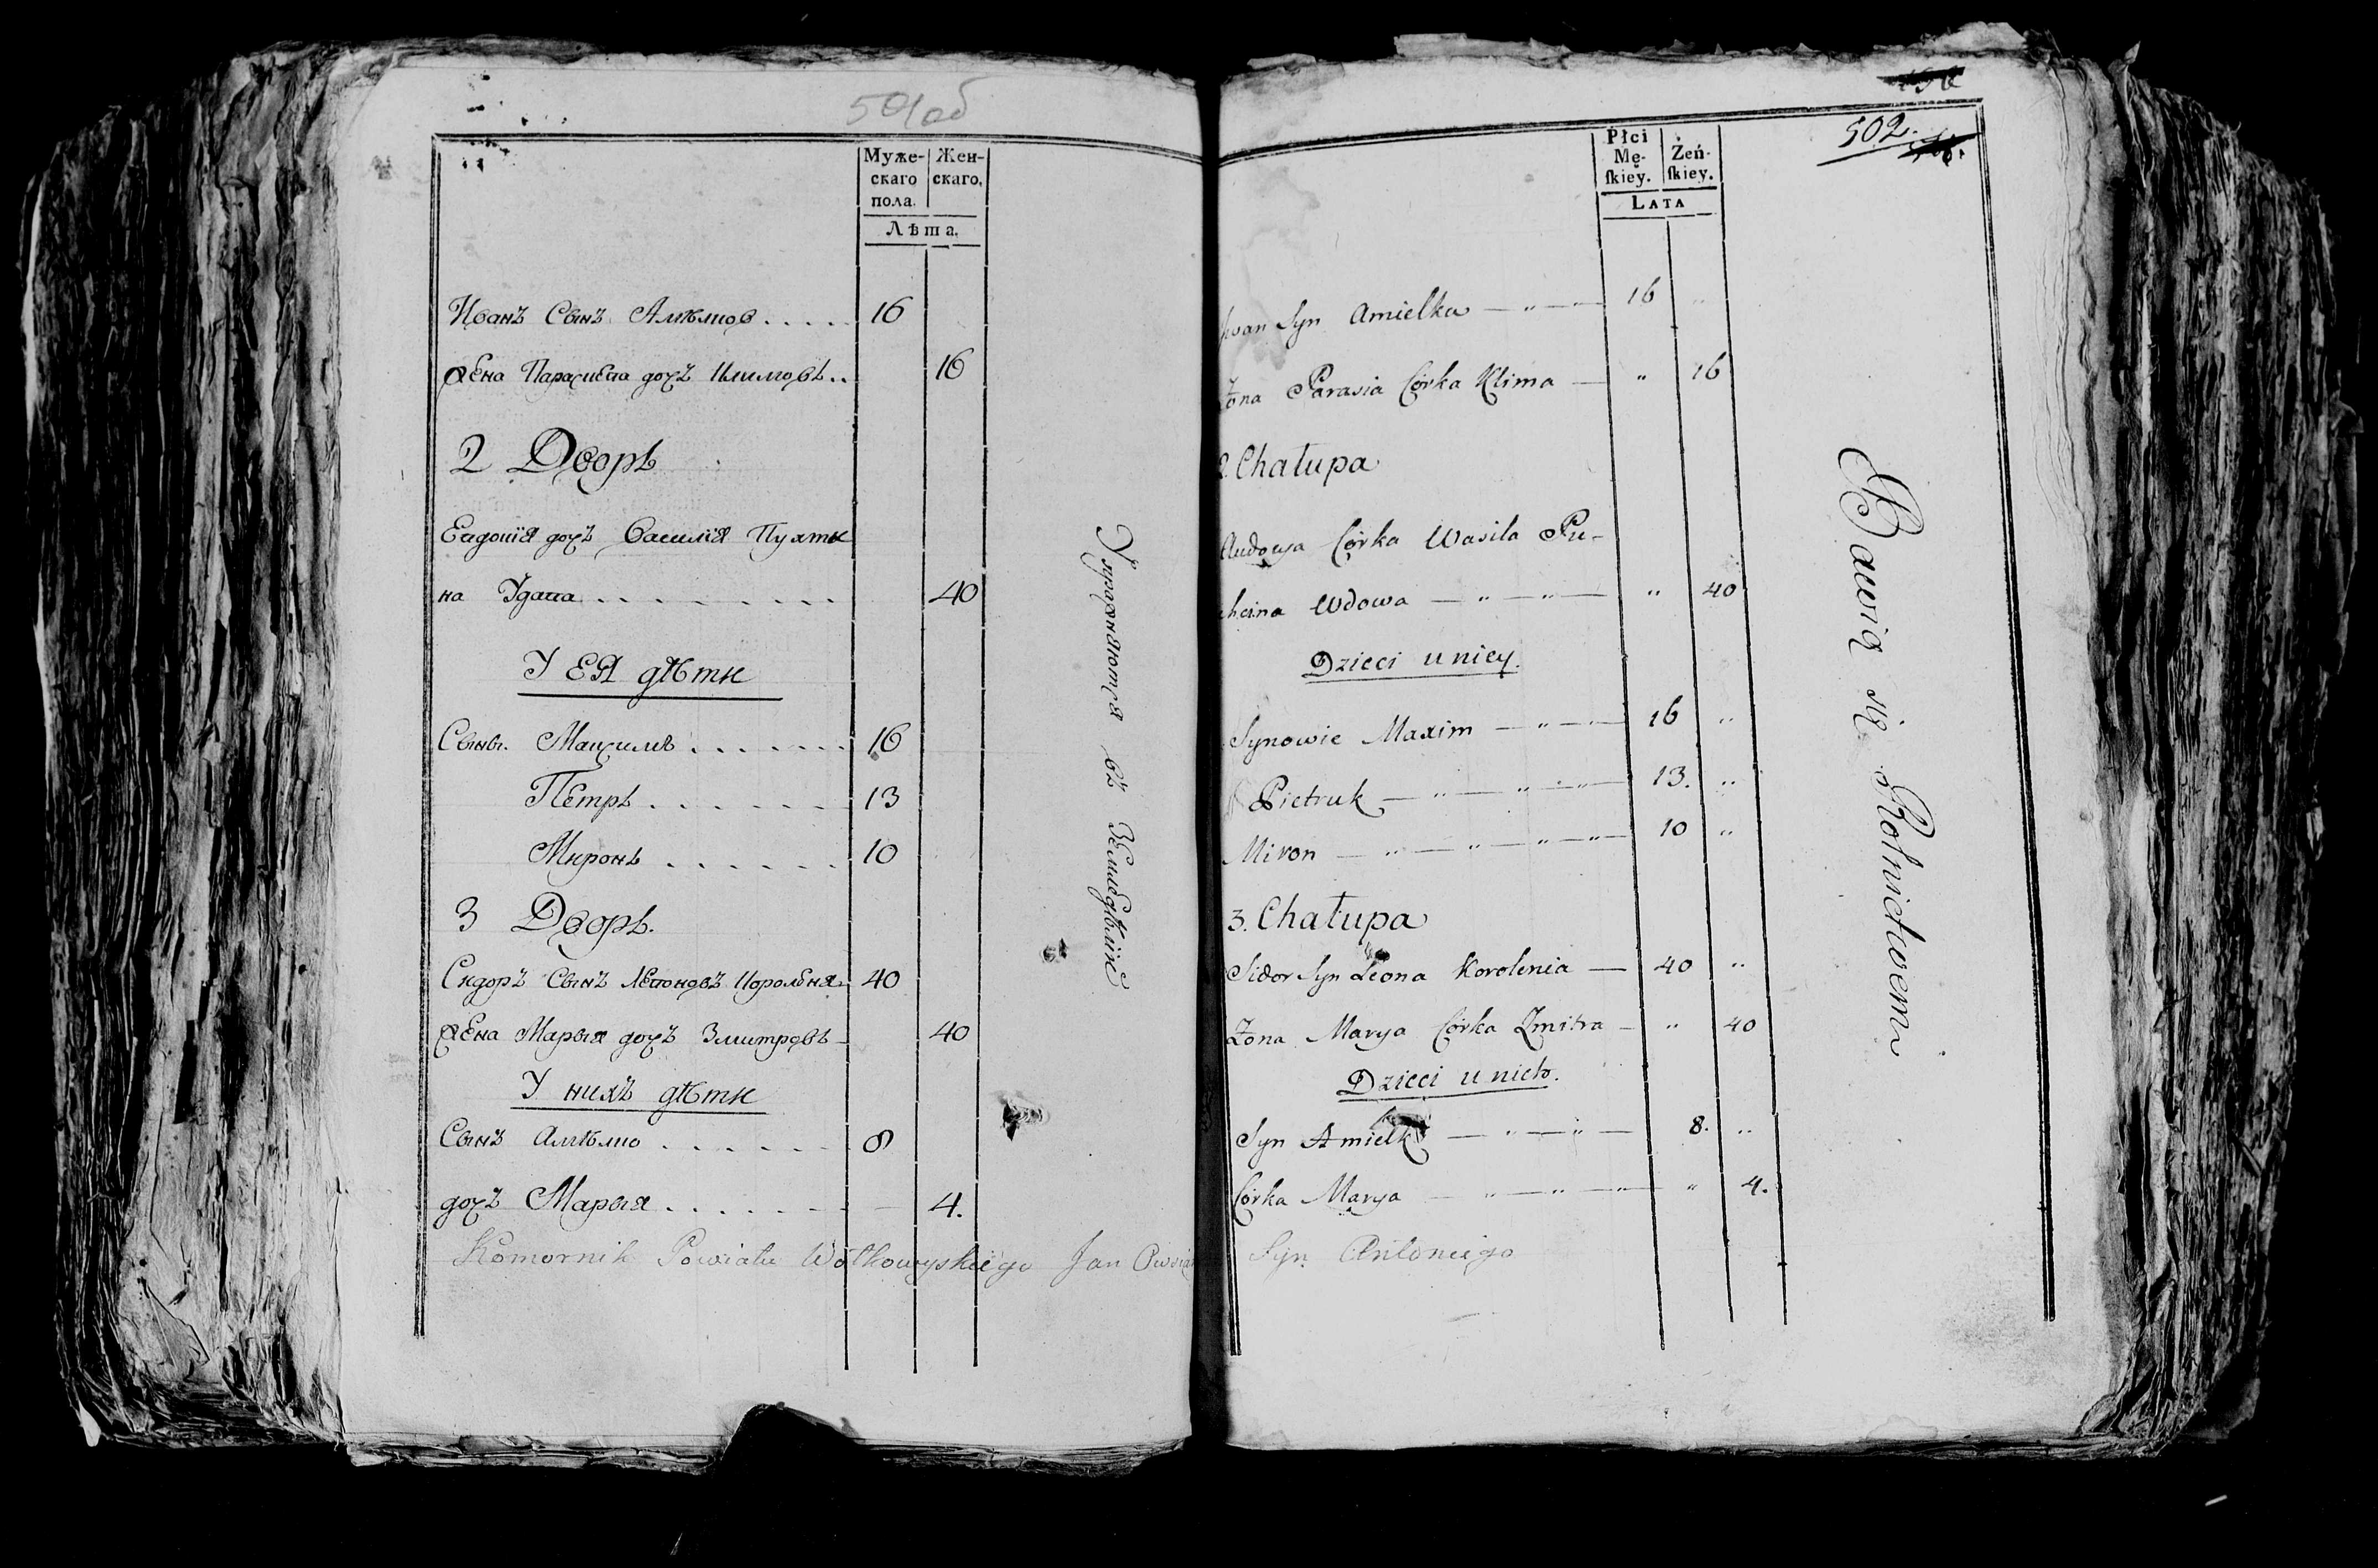 501об
Муже-
скаго
пола.
Жен-
скаго.
Лѣта.
Иванъ Сынъ Амѣлков . . . . . 16
жена Параскева дочъ Климовъ . . 16
2 Дворъ
Евдокія дочъ Василія Пухти
на Удава . . . . . . . . . 40
У ЕЯ дѣти
Сынъ. Максимъ . . . . . . . 16
Петръ . . . . . . . 13
Миронъ . . . . . . . 10
3 Дворъ.
Сидоръ Сынъ Леоновъ Короленя 40
жена Марыя дочъ Змитровъ - 40
У нихъ дѣти
Сынъ Амѣлко . . . . . . . 8
дочъ Марыя . . . . . . . 4.
Упражняются въ Земледѣліи
Komornik Powiatu Wołkowyskiego Jan
502.
Płci
Mę-
ſkiey.
Zeń-
ſkiey.
LATA
Iwan Syn Amielka — „ — „ — 16 „
Żona Parasia Córka Klima — „ 16
2. Chałupa
Audocya Córka Wasila Pu-
chcina Wdowa — „ — „ — „ 40
Dzieci u niey.
Synowie Maxim — „ — „ — 16 „
Pietruk — „ — „ — „ — 13. „
Miron — „ — „ — „ — „ — 10 „
3. Chałupa
Sidor Syn Leona Korolenia — 40 „
Żona Marya Córka Zmitra — „ 40
Dzieci u nich.
Syn Amielk — „ — „ — 8. „
Córka Marya — „ — „ — „ — „ 4.
Syn Antoniego
Bawią się Rolnictwem